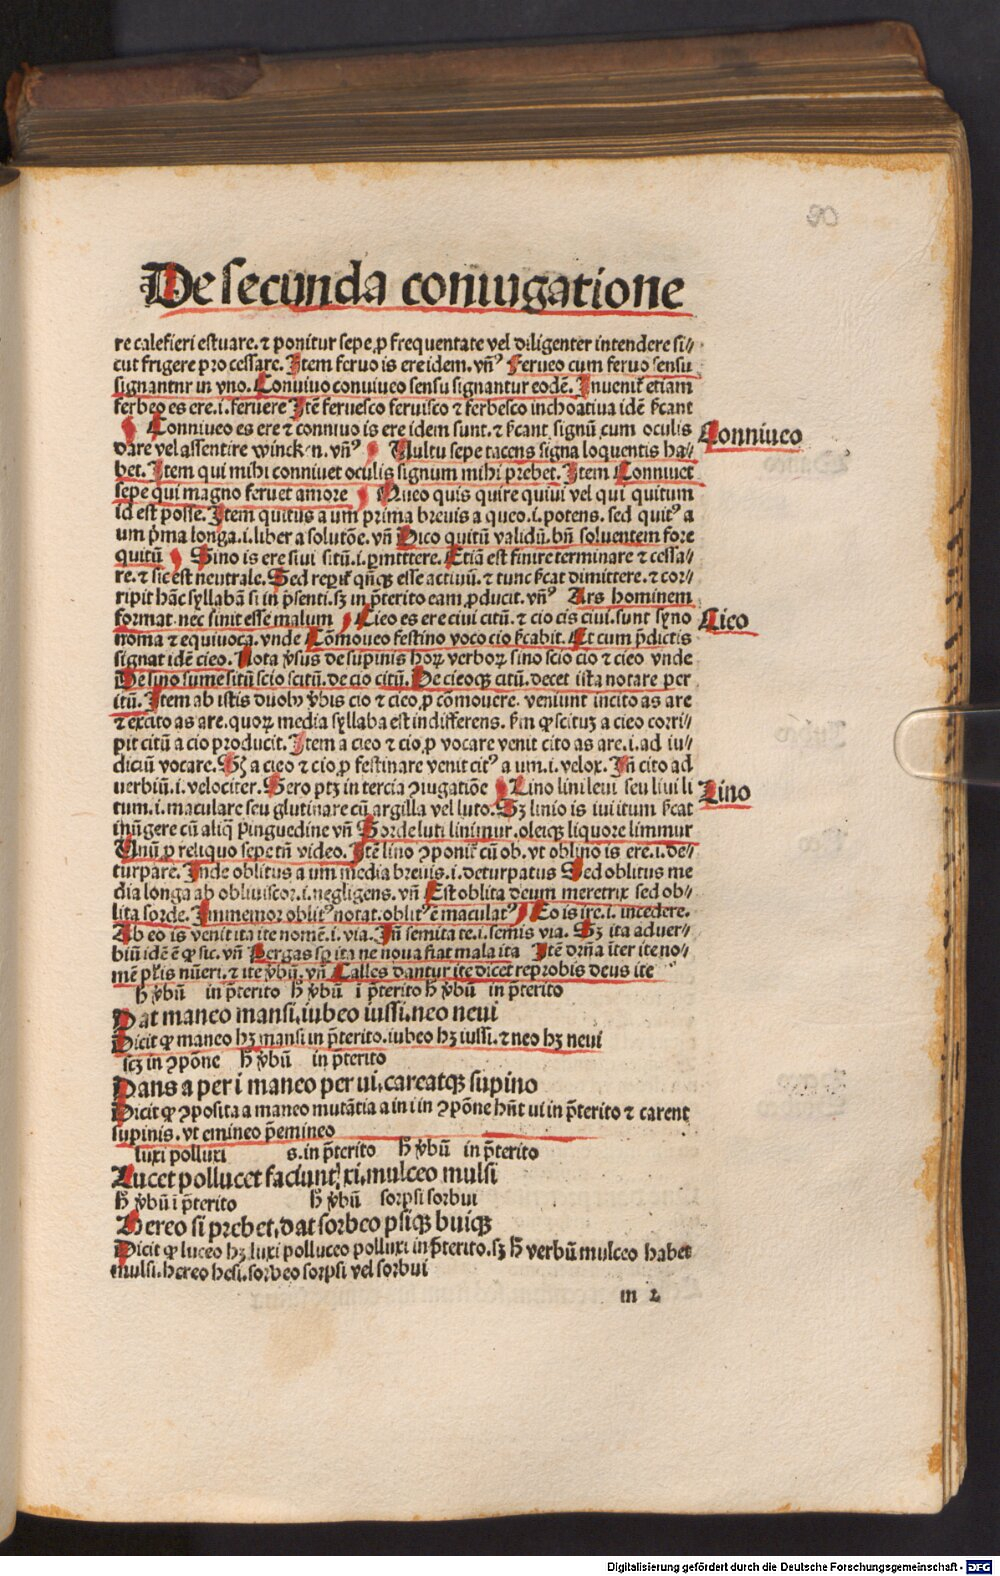 90
De secunda coniugatione
re calefieri estuare. ⁊ ponitur sepe ꝓ frequentate vel diligenter intendere si//
cut frigere pro cessare. Item feruo is ere idem. vn̄ꝰ Ferueo cum feruo sensu
signantnr in vno. Conuiuo conuiueo sensu signantur eodē. Inuenit᷑ etiam
ferbeo es ere .i. feruere Itē feruesco feruisco ⁊ ferbesco inchoatiua idē s̄cant
Conniueo es ere ⁊ conniuo is ere idem sunt. ⁊ s̄cant signū cum oculis
dare vel assentire winckn. vn̄ꝰ Uultu sepe tacens signa loquentis ha//
bet. Item qui mihi conniuet oculis signum mihi prebet. Item Conniuet
sepe qui magno feruet amore Queo quis quire quiui vel qui quitum
id est posse. Item quitus a um prima breuis a queo .i. potens. sed quitꝰ a
um p̄ma longa .i. liber a solutōe. vn̄ Dico quitū validū. bn̄ soluentem fore
quitū Sino is ere siui sitū .i. ꝑmittere. Etiā est finire terminare ⁊ cessa//
re. ⁊ sic est neutrale. Sed reꝑit᷑ qn̄qꝫ esse actiuū. ⁊ tunc s̄cat dimittere. ⁊ cor//
ripit hāc syllabā si in p̄senti. sꝫ in p̄terito eam ꝓducit. vn̄ꝰ Ars hominem
format. nec sinit esse malum Cieo es ere ciui citū. ⁊ cio cis ciui. sunt syno
noma ⁊ equiuoca. vnde Cōmoueo festino voco cio s̄cabit. Et cum p̄dictis
signat idē cieo. Nota v̄sus de supinis horꝝ verborꝝ sino scio cio ⁊ cieo vnde
De sino sume sitū scio scitū. de cio citū. De cieoqꝫ citū. decet ista notare per
itū. Item ab istis duobꝫ v̄bis cio ⁊ cieo ꝓ cōmouere. veniunt incito as are
⁊ excito as are. quorꝝ media syllaba est indifferens. s̄m ꝙ scituꝫ a cieo corri//
pit citū a cio producit. Item a cieo ⁊ cio ꝓ vocare venit cito as are .i. ad iu//
diciū vocare. Sꝫ a cieo ⁊ cio ꝓ festinare venit citꝰ a um .i. velox. In̄ cito ad
uerbiū .i. velociter. Sero ptꝫ in tercia ꝯiugatiōe Lino lini leui seu liui li
tum .i. maculare seu glutinare cū argilla vel luto. Sꝫ linio is iui itum s̄cat
inūgere cū aliq̄ pinguedine vn̄ Sorde luti linimur. oleiqꝫ liquore limmur
Unū ꝓ reliquo sepe tn̄ video. Itē lino ꝯponit᷑ cū ob. vt oblino is ere .i. de//
turpare. Inde oblitus a um media breuis .i. deturpatus Sed oblitus me
dia longa ab obliuiscor .i. negligens. vn̄ Est oblita deum meretrix sed ob//
lita sorde. Immemor oblitꝰ notat. oblitꝰ ē maculatꝰ Eo is ire .i. incedere.
Ab eo is venit ita ite nomē .i. via. In̄ semita te .i. semis via. Sꝫ ita aduer//
biū idē ē ꝙ sic. vn̄ Pergas sꝑ ita ne noua fiat mala ita Itē dr̄na īter ite no//
mē pl̄is nūeri. ⁊ ite v̄bū. vn̄ Calles dantur ite dicet reprobis deus ite
h̄ v̄bū in p̄terito h̄ v̄bū ī p̄terito h̄ v̄bū in p̄terito
Dat maneo mansi, iubeo iussi, neo neui
Dicit ꝙ maneo hꝫ mansi in p̄terito. iubeo hꝫ iussi. ⁊ neo hꝫ neui
scꝫ in ꝯpōne h̄ v̄bū in p̄terito
Dans a per i maneo per ui, careatqꝫ supino
Dicit ꝙ ꝯposita a maneo mutātia a in i in ꝯpōne hn̄t ui in p̄terito ⁊ carent
supinis. vt emineo p̄emineo
luxi polluxi s. in p̄terito h̄ v̄bū in p̄terito
Lucet pollucet faciunt xi, mulceo mulsi
h̄ v̄bū ī p̄terito h̄ v̄bū sorpsi sorbui
Hereo si prebet, dat sorbeo psiqꝫ buiqꝫ
Dicit ꝙ luceo hꝫ luxi polluceo polluxi in p̄terito. sꝫ h̄ verbū mulceo habet
mulsi. hereo hesi. sorbeo sorpsi vel sorbui
m 2
Conniueo
Cieo
Lino
Digitalisierung gefördert durch die Deutsche Forschungsgemeinschaft - DFG